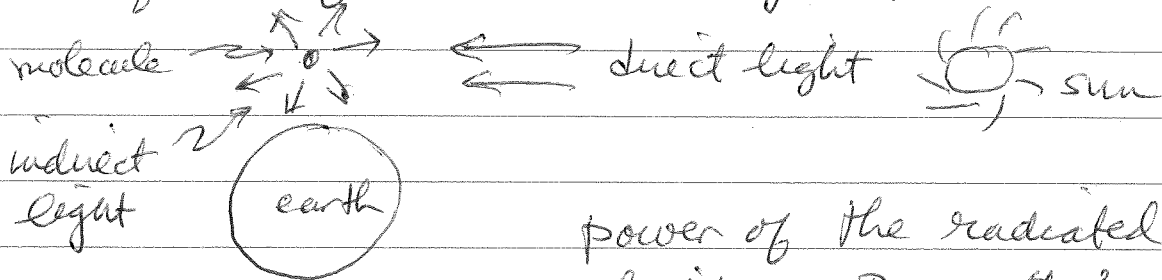 molecule direct light sun
indirect
light earth
power of the radiated